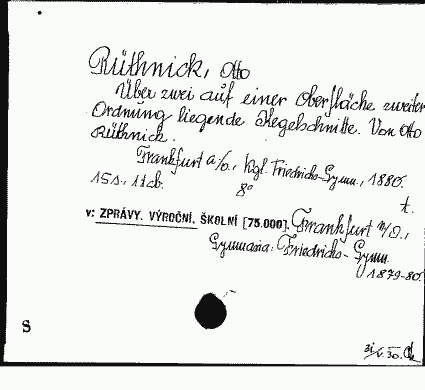 Rüthnick, Otto
Über zwei auf einer Oberfläche zweiter
Ordnung liegende Kegelschnitte. Von Otto
Rüthnick.
Frankfurt a/O., Kgl. Friedrichs-Gymn., 1880.
15 s., 1 tab. 8° t.
v: ZPRÁVY. VÝROČNÍ. ŠKOLNÍ [75.000]. Frankfurt a/O.,
Gymnasia: Friedrichs-Gymn.
1879-80.
S